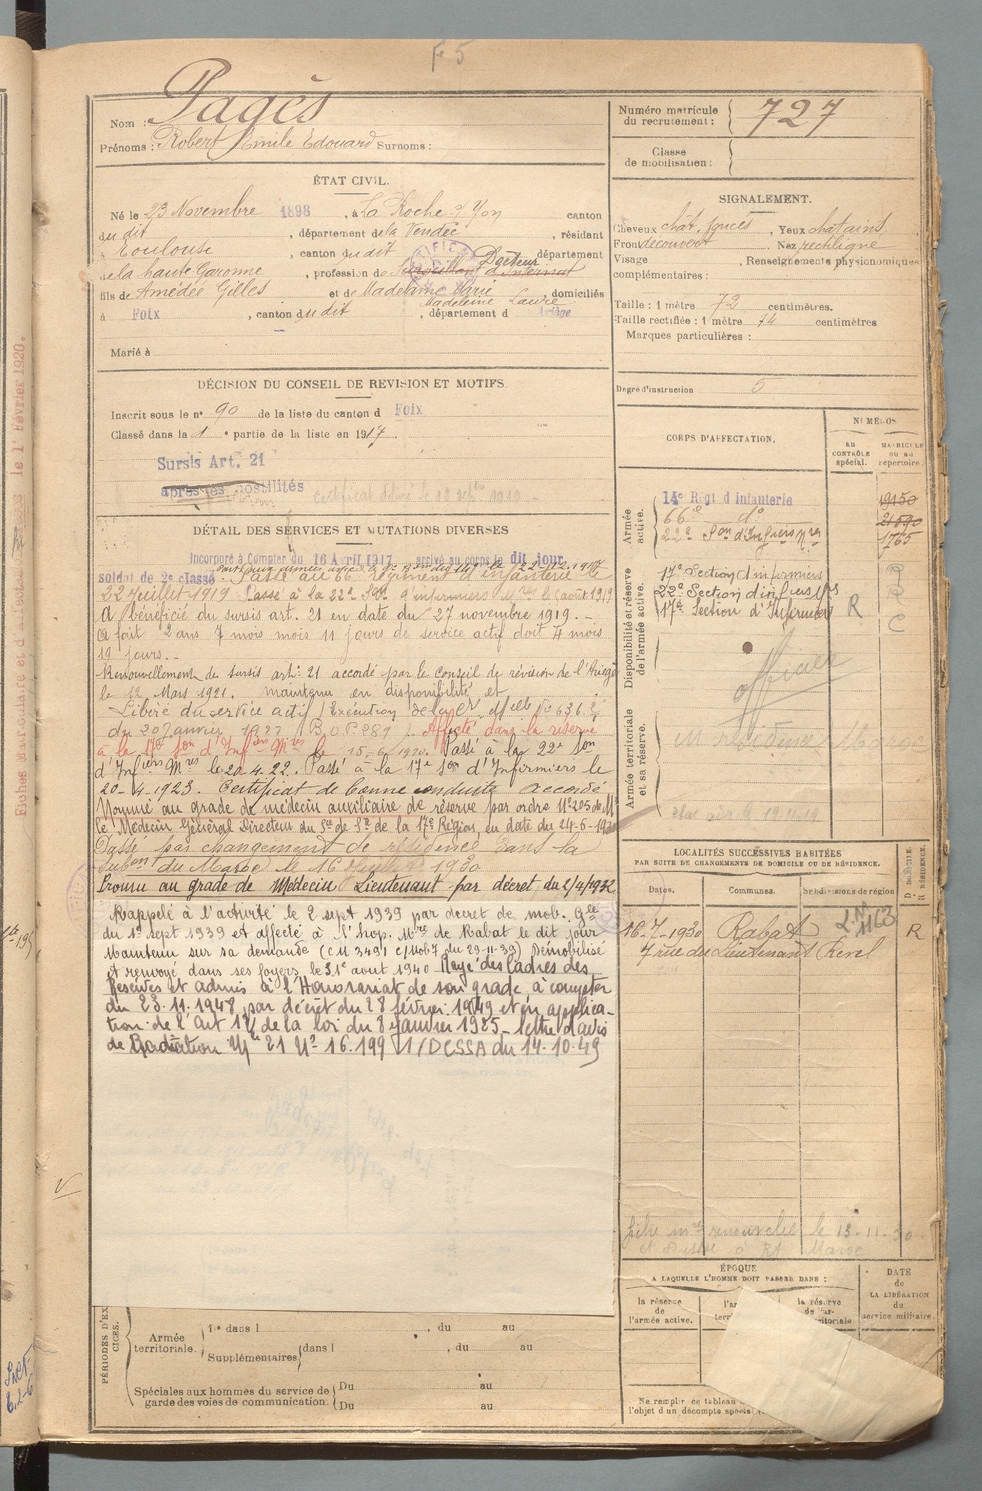 F° 5
Nom : Pagès
Prénoms : Robert Emile Edouard Surnoms :
Numéro matricule
du recrutement : 727
Classe
de mobilisation :
ÉTAT CIVIL.
Né le 23 Novembre 1898, à La Roche s/ Yon canton
du dit, département de la Vendée, résidant
à Toulouse, canton du dit département
de la haute Garonne, profession de Docteur
fils de Amédée Gilles et de Madelaine Marie, domiciliés
Madeleine Laure
à Foix, canton du dit, département d Ariège
Marié à
SIGNALEMENT.
Cheveux chat. foncés, Yeux chatains
Front découvert Nez rectiligne
Visage , Renseignements physionomiques
complémentaires :
Taille : 1 mètre 72 centimètres.
Taille rectifiée : 1 mètre 74 centimètres
Marques particulières :
Degré d'instruction 5
DÉCISION DU CONSEIL DE REVISION ET MOTIFS
Inscrit sous le n° 90 de la liste du canton d Foix
Classé dans la 1e partie de la liste en 1917.
Sursis Art. 21
après les hostilités
DÉTAIL DES SERVICES ET MUTATIONS DIVERSES
Incorporé à Compter du 16 Avril 1917 arrivé au corps le dit jour
soldat de 2e classe. Passé au 66e Régiment d'infanterie le
22 Juillet 1919. Passé à la 22e Son d'infirmiers Mres le août 1919
A bénéficié du sursis art. 21 en date du 27 novembre 1919. -
A fait 2 ans 7 mois mois 11 jours de service actif doit 4 mois
19 jours. -
Renouvellement de sursis art. 21 accordé par le conseil de révision de l'Ariège
le 12 Mars 1921. maintenu en disponibilité et
Libéré du service actif (Exécution de la Cre Mlle N° 636.
du 20 Janvier 1922 (B.O.P. 289). Affecté dans la réserve
à la 17e Son d'Infiers Mres le 15-6-1920. Passé à la 22e Son
d'Infiers Mres le 20.4.22. Passé à la 17e Son d'Infirmiers le
20-4-1923. Certificat de bonne conduite accordé
Nommé au grade de médecin auxiliaire de réserve par ordre N° 205 de Mr
le Médecin Général Directeur du Sce de Sté de la 17e Région, en date du 24-6-1930
Passé par changement de résidence dans la
Subon du Maroc le 16 1930
Promu au grade de Médecin Lieutenant par décret du 2/4/1932
Rappelé à l'activité le 2 sept 1939 par décret de mob. Gle
du 1er sept 1939 et affecté à l'hop. Mre de Rabat le dit jour
Maintenu sur sa demande (CM 3491 c/Mob7 du 29-11-39) Démobilisé
et renvoyé dans ses foyers le 31e aout 1940. Rayé des Cadres des
Réserves et admis à l'Honorariat de son grade à compter
du 23.11.1948 par décret du 28 février 1949 et en applica-
tion de l'art 1 de la loi du 8 Janvier 1925 - lettre d'avis
de Radiation N° 16.199 /DCSSA du 14-10-49
CORPS D'AFFECTATION.
NUMÉROS
AU CONTRÔLE spécial.
MATRICULE ou au répertoire.
Armée active.
14e Régt d infanterie 19150
66e do 21690
22e Son d'Infiers Mres 1765
Disponibilité et réserve de l'armée active.
17e Section d'infirmiers
22e Section d'infirmiers
17e Section d'Infirmiers R C
officier
Armée territoriale et sa réserve.
LOCALITÉS SUCCESSIVES HABITÉES
PAR SUITE DE CHANGEMENTS DE DOMICILE OU DE RÉSIDENCE.
Dates. Communes. Subdivisions de région D. DOMICILE. R. RÉSIDENCE.
16-7-1930 Rabat R
7 rue du Lieutenant Revel
le 13-11-30
Maroc
ÉPOQUE
A LAQUELLE L'HOMME DOIT PASSER DANS :
la réserve
de
l'armée active.
la réserve
DATE
de
LA LIBÉRATION
du
service militaire.
Ne remplir ce tableau
l'objet d'un décompte spécial
PÉRIODES D'EXERCICES.
Armée
territoriale.
1re dans l , du au
Supplémentaires dans l , du au
Spéciales aux hommes du service de
garde des voies de communication.
Du au
Du au